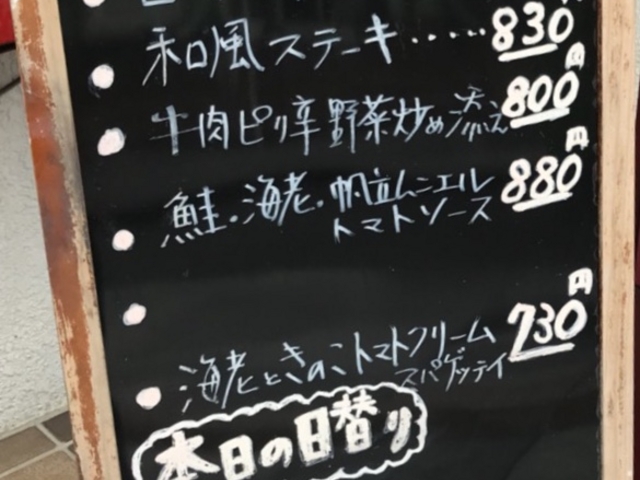 和風ステーキ……830円
牛肉ピリ辛野菜炒め添え800円
鮭・海老・帆立ムニエル880円
トマトソース
海老ときのこトマトクリーム730円
スパゲッティ
本日の日替り